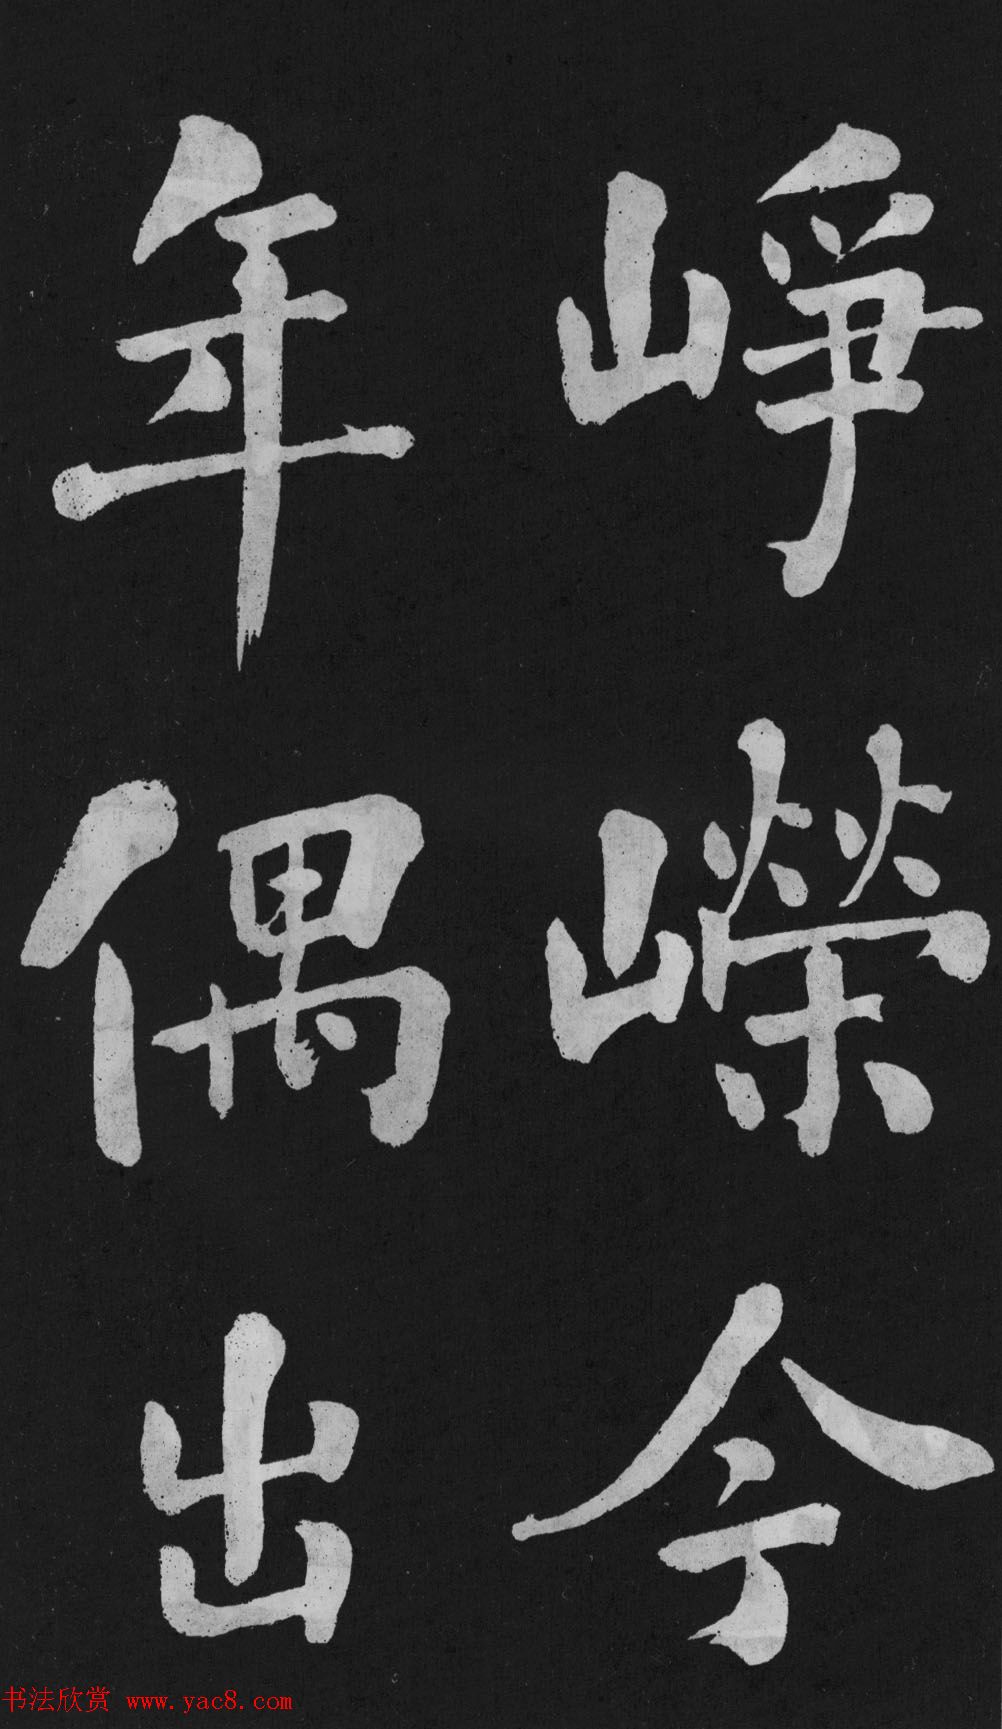 崢嶸今
年偶出
书法欣赏 www.yac8.com